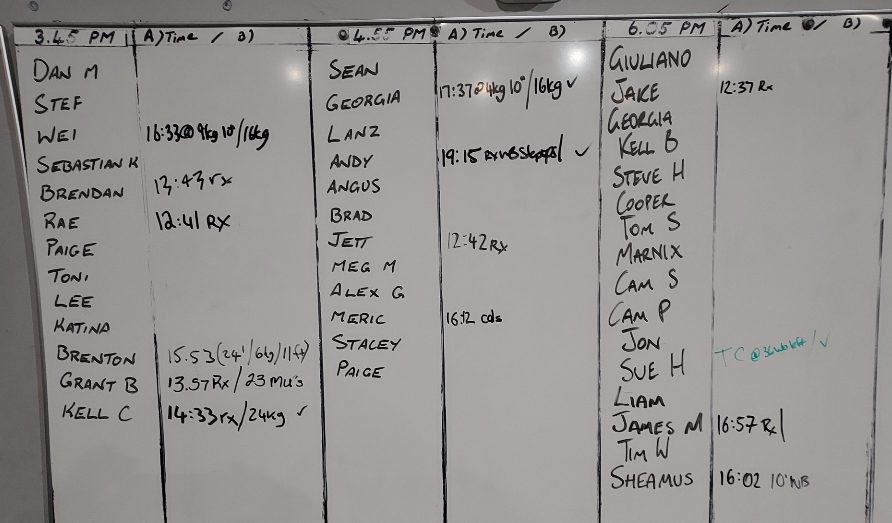 3.45 PM A) Time / B)
DAN M
STEF
WEI 16:33@9kg 10"/16kg
SEBASTIAN K
BRENDAN 13:43 rx
RAE 12:41 RX
PAIGE
TONI
LEE
KATINA
BRENTON 15.53 (24"/6kg/11ft)
GRANT B 13.57 Rx / 23 MU's
KELL C 14:33 rx/24kg ✓
4.55 PM A) Time / B)
SEAN
GEORGIA 17:37@4kg 10"/16kg ✓
LANZ
ANDY 19:15 RX WB Stepups/ ✓
ANGUS
BRAD
JETT 12:42 Rx
MEG M
ALEX G
MERIC 16:12 cals
STACEY
PAIGE
6.05 PM A) Time / B)
GIULIANO
JAKE 12:37 Rx
GEORGIA
KELL B
STEVE H
COOPER
TOM S
MARNIX
CAM S
CAM P
JON
SUE H TC @ 36wb left / ✓
LIAM
JAMES M 16:57 Rx/
TIM W
SHEAMUS 16:02 10'WB